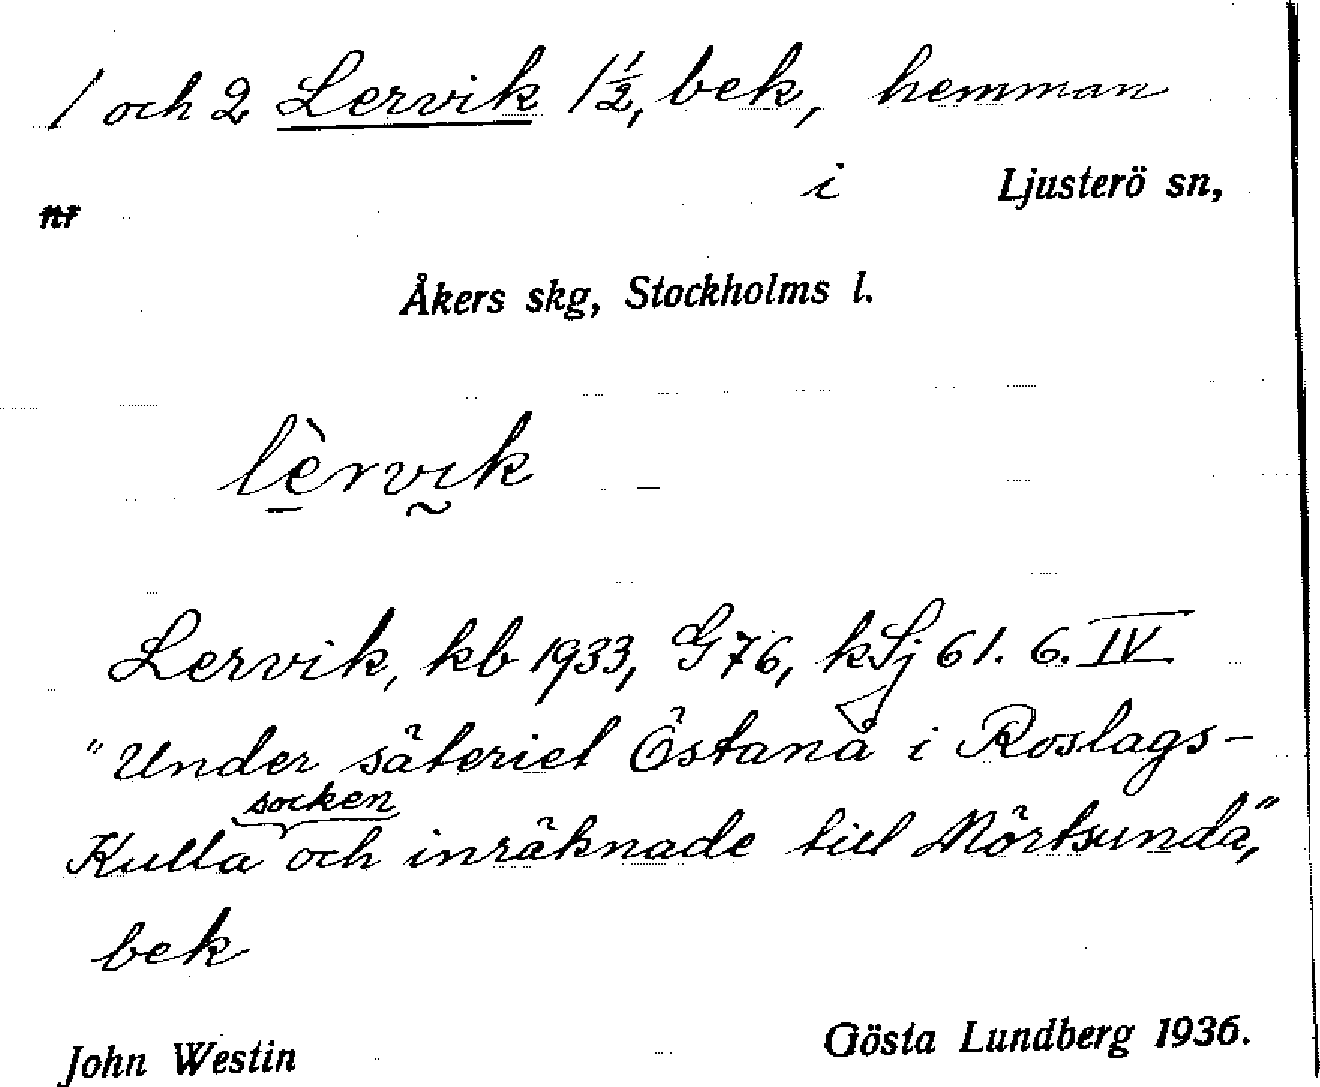 1 och 2 Lervik 1 1/2, bek, hemman
nr i Ljusterö sn,
Åkers skg, Stockholms l.
lèrvık
Lervik, kb 1933, G 76, kLj 61. 6. IV
"Under säteriet Östanå i Roslags-
socken
Kulla och inräknade till Mörtsunda",
bek
John Westin Gösta Lundberg 1936.